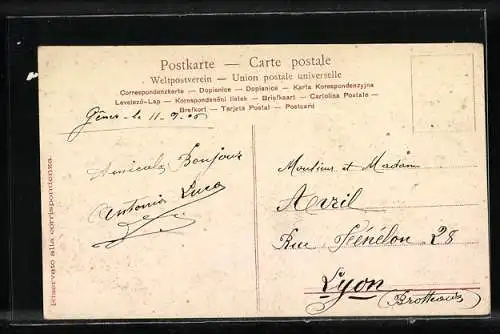 Postkarte — Carte postale
Weltpostverein — Union postale universelle
Correspondenzkarte — Dopisnice — Dopisnice — Karta Korespondenzyjna
Levelező-Lap — Korespondenční listek — Briefkaart — Cartolina Postale —
Brefkort — Tarjeta Postal — Postcard
le 11-9-05
Amicals Bonjour
Antonia Luca
Riservato alla corrispondenza.
et Madame
Avril
Rue Fénélon 28
Lyon
(Brotteaux)